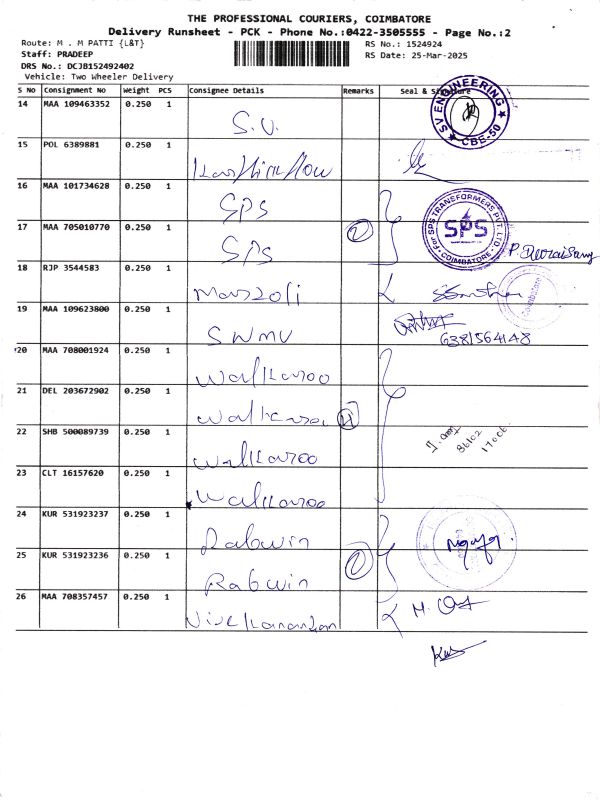 THE PROFESSIONAL COURIERS, COIMBATORE
Delivery Runsheet - PCK - Phone No.:0422-3505555 - Page No.:2
Route: M . M PATTI {L&T} RS No.: 1524924
Staff: PRADEEP RS Date: 25-Mar-2025
DRS No.: DCJB152492402
Vehicle: Two Wheeler Delivery
S No Consignment No Weight PCS Consignee Details Remarks Seal & Signature
SV ENGINEERING CBE-50
14 MAA 109463352 0.250 1 S.V.
15 POL 6389881 0.250 1
16 MAA 101734628 0.250 1 SPS
For SPS TRANSFORMERS PVT. LTD. SPS COIMBATORE
17 MAA 705010770 0.250 1 SPS 2
18 RJP 3544583 0.250 1 Marzoli
Coimbatore
19 MAA 109623800 0.250 1 SWMV
6381564148
20 MAA 708001924 0.250 1 Walkaroo
21 DEL 203672902 0.250 1 Walkaroo 4
22 SHB 500089739 0.250 1 Walkaroo
23 CLT 16157620 0.250 1 Walkaroo
24 KUR 531923237 0.250 1 Rabwin
25 KUR 531923236 0.250 1 Rabwin 2
26 MAA 708357457 0.250 1